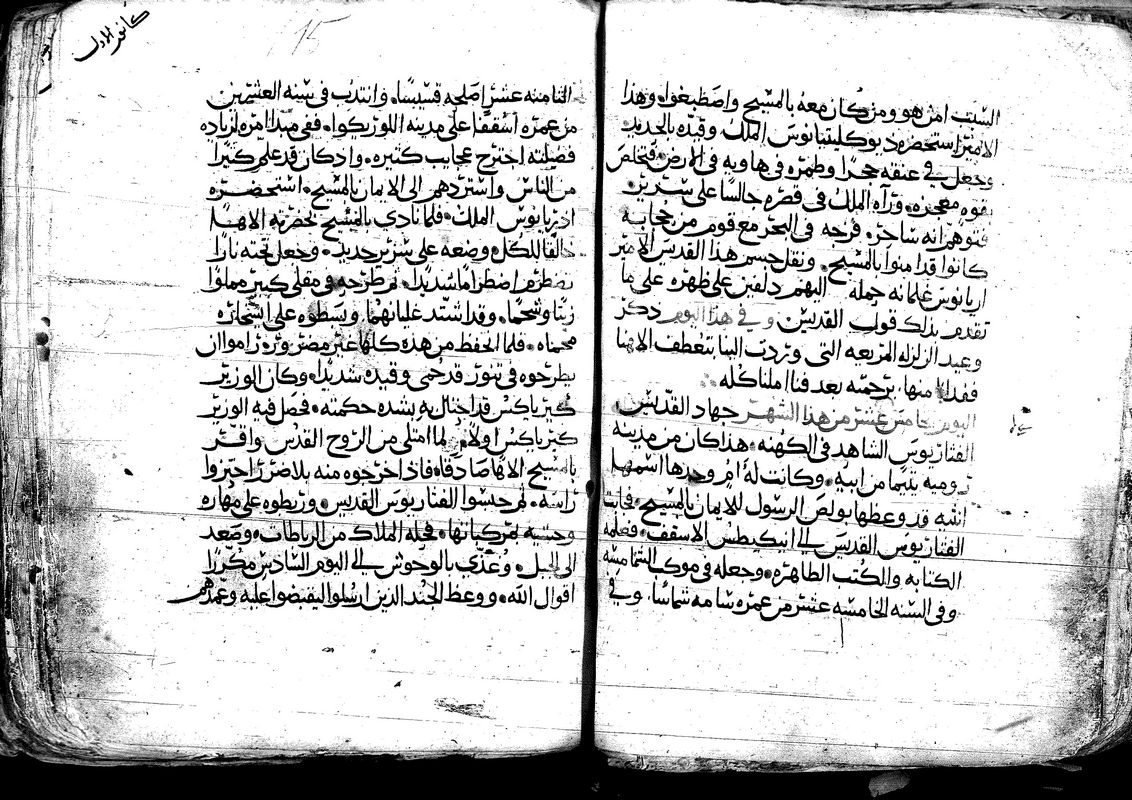 السبب امن هو ومن كان معه بالمسيح واصطبغوا، وهذا
الامير استحضره ديوكليتيانوس الملك، وقيده بالحديد
وجعل في عنقه حجرا وطمره في هاويه في الارض، فتخلص
بقوه معجزه، ورآه الملك في قصره جالسا على سريره
فتوهم انه ساحر، فزجه في البحر مع قوم من حجابه
كانوا قد امنوا بالمسيح. ونقل جسم هذا القديس الامير
اريانوس غلمانه جمله البهم دلفين على ظهره على ما
تقدم بذلك قولنا القديس. وفي هذا اليوم ذكر
وعيد الزلزله المريعه التي وردت الينا بتعطف الالاهنا
فقدا منها، برحمته بعد فنا املنا كله.
اليوم خامس عشر من هذا الشهر جهاد القديس
الفتاريوس الشاهد في الكهنه. هذا كان من مدينه
روميه يتيما من ابيه. وكانت له ام وحدها اسمها
انثيه قد وعظها بولص الرسول للايمان بالمسيح، فجابت
الفتاريوس القديس الى انيكيطس الاسقف. فعلمه
الكتابه والكتب الطاهره. وجعله في موكب الشمامسه
وفي السنه الخامسه عشر من عمره سامه شماسا. وفي
15
كانون الاول
الثامنه عشر اصلحه قسيسا. وانتدب في سنه العشرين
من عمره اسقفا على مدينه اللوريكوا. ففي مبدا امره لزياده
فضيلته اجترح عجايب كثيره. واذ كان قد علم كثيرا
من الناس واستردهم الى الايمان بالمسيح. استحضره
ادريانوس الملك. فلما نادى بالمسيح بحضرته الاها
خالقا للكل. وضعه على سرير حديد. وجعل تحته نارا
تضطرم اضطراما شديدا. ثم طرحه في مقلى كبير مملوا
زيتا وشحما. وقد اشتد غليانهما وبسطوه على اسكاره
محماه. فلما انحفظ من هذه كلها غير مضرور امروا ان
يطرحوه في تنور قد حمي وقيده شديدا. وكان الوزير
كيرياكس قد احتال به بشده حكمته. فحصل فيه الوزير
كيرياكس اولا. لما امتلى من الروح القدس واقر
بالمسيح الاها صادقا. فاذ اخرجوه منه بلا ضرر اجتزوا
راسه. ثم حبسوا الفتاريوس القديس. وربطوه على مهاره
وحشيه بمركباتها. فحله الملاك من الرباطات. وصعد
الى الجبل. وعذي بالوحوش الى اليوم السادس مكررا
اقوال الله. ووعظ الجند الذين ارسلوا ليقبضوا عليه وعمدهم